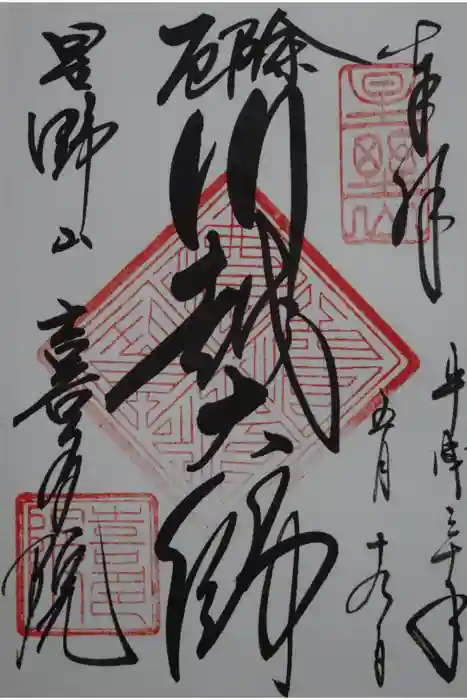 奉拝
平成三十年
五月十九日
厄除
川越大師
星野山
喜多院
星野山